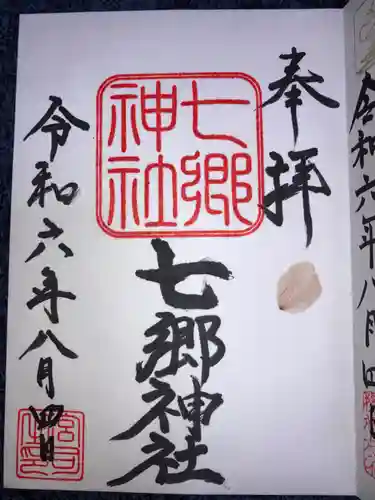 令和六年八月四日
奉拝
七郷神社
七郷神社
令和六年八月四日